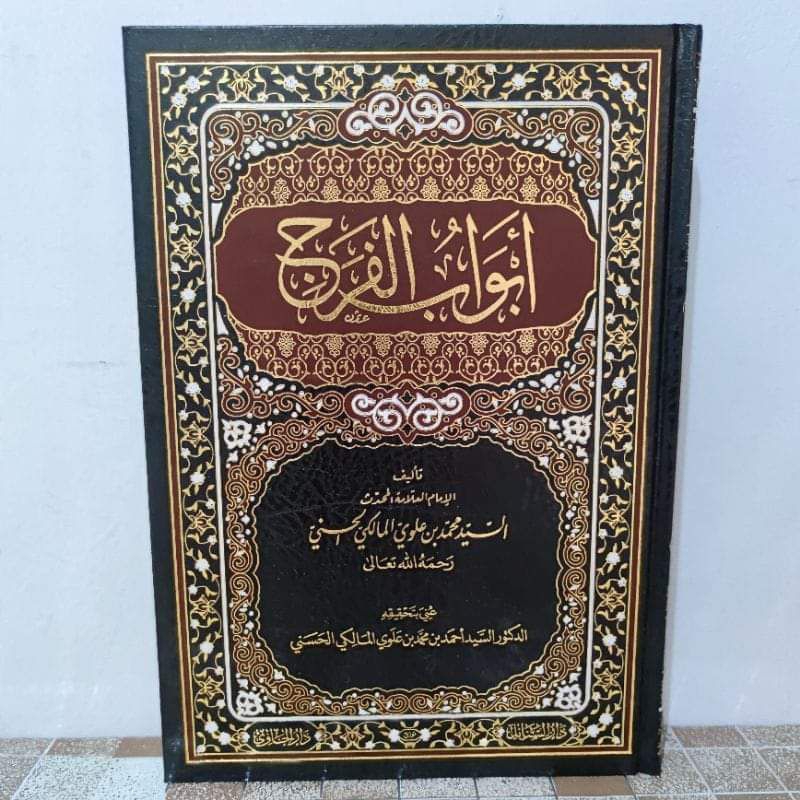 أبواب الفرج
تأليف
الإمام العلامة المحدث
السيد محمد بن علوي المالكي الحسني
رحمه الله تعالى
عني بتحقيقه
الدكتور السيد أحمد بن محمد بن علوي المالكي الحسني
دار السنابل